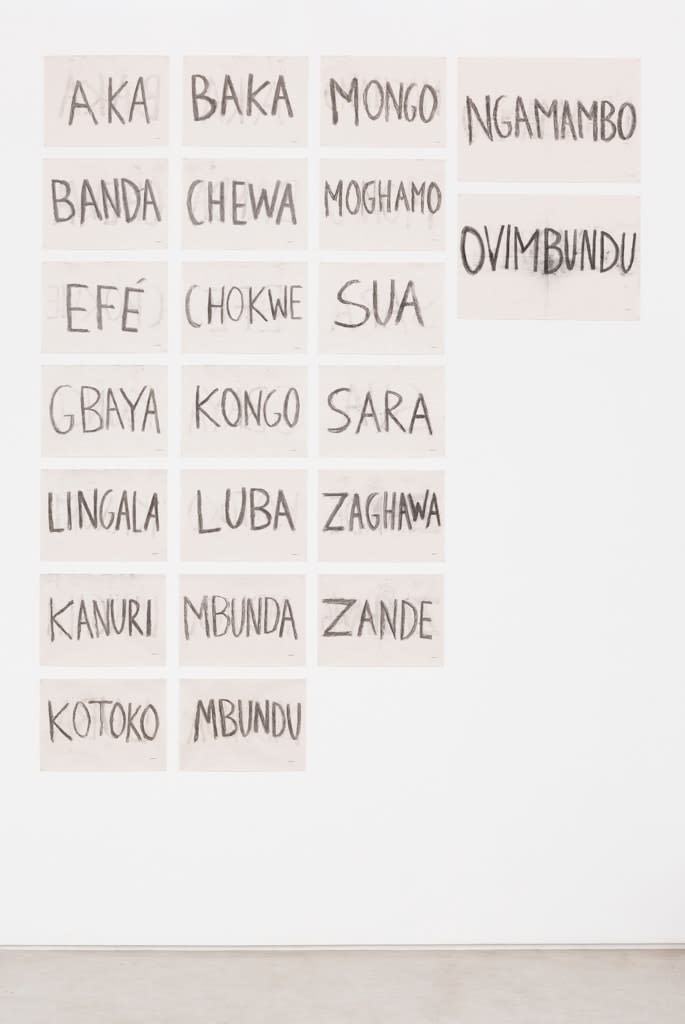 AKA
BANDA
EFÉ
GBAYA
LINGALA
KANURI
KOTOKO
BAKA
CHEWA
CHOKWE
KONGO
LUBA
MBUNDA
MBUNDU
MONGO
MOGHAMO
SUA
SARA
ZAGHAWA
ZANDE
NGAMAMBO
OVIMBUNDU